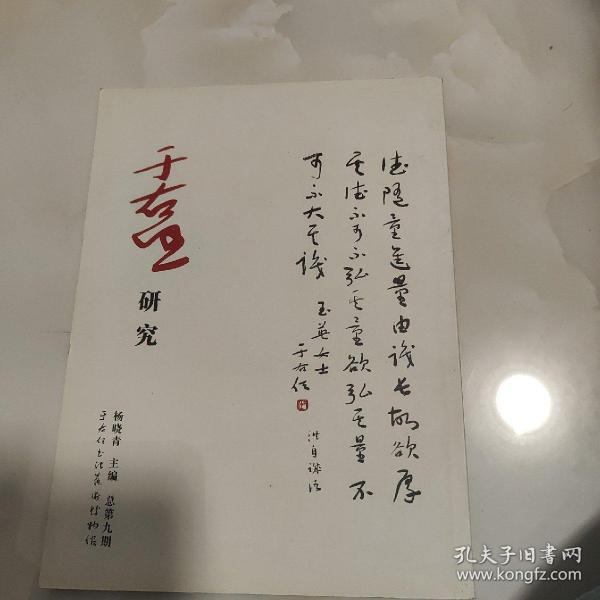 德隨量進量由識長故欲厚
其德不可不弘其量欲弘其量不
可不大其識
玉英女士
于右任
洪自誠語
于右任
研究
杨晓青 主编 总第九期
于右任書法藝術博物館
孔夫子旧书网
www.kongfz.com